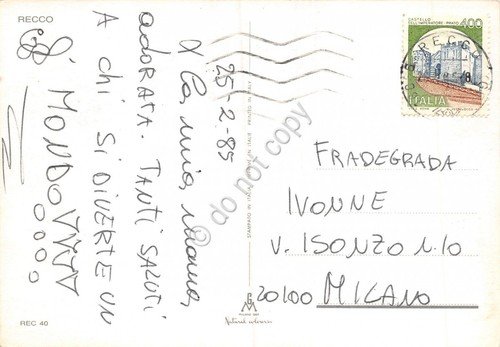 RECCO
25-2-85
X la mia mamma,
adorata. TANTI SALUTI
A chi SI DIVERTE UN
MONDO
REC 40
STAMPATO IN ITALIA
CASTELLO
DELL'IMPERATORE - PRATO
400
ITALIA
RECCO
FRADEGRADA
IVONNE
V. ISONZO N. 10
20100 MILANO
© do not copy